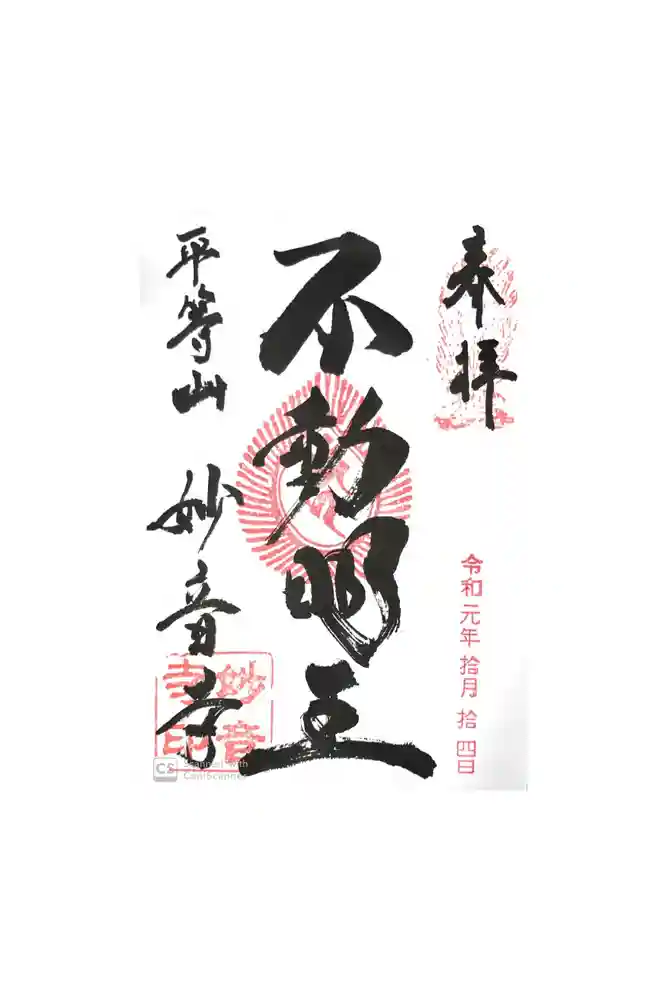 奉拝
令和元年拾月拾四日
不動明王
平等山 妙音寺
妙音寺印
CS Scanned with
CamScanner